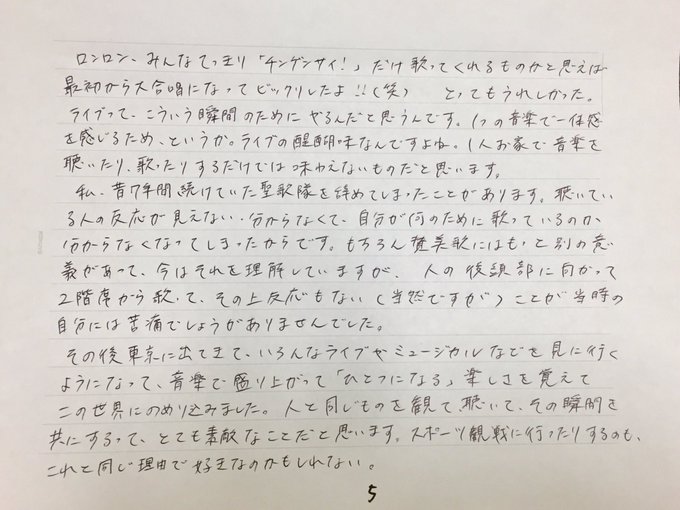 ロンロン、みんなてっきり「チンゲンサイ!」だけ歌ってくれるものかと思えば
最初から大合唱になってビックリしたよ!!(笑) とってもうれしかった。
ライブって、こういう瞬間のためにやるんだと思うんです。1つの音楽で一体感
を感じるため、というか。ライブの醍醐味なんですよね。1人お家で音楽を
聴いたり、歌ったりするだけでは味わえないものだと思います。
私、昔7年間続けていた聖歌隊を辞めてしまったことがあります。聴いてい
る人の反応が見えない・分からなくて、自分が何のために歌っているのか
分からなくなってしまったからです。もちろん賛美歌にはもっと別の意
義があって、今はそれを理解していますが、人の後頭部に向かって
2階席から歌って、その上反応もない(当然ですが)ことが当時の
自分には苦痛でしょうがありませんでした。
その後東京に出てきて、いろんなライブやミュージカルなどを見に行く
ようになって、音楽で盛り上がって「ひとつになる」楽しさを覚えて
この世界にのめり込みました。人と同じものを観て、聴いて、その瞬間を
共にするって、とても素敵なことだと思います。スポーツ観戦に行ったりするのも、
これと同じ理由で好きなのかもしれない。
5